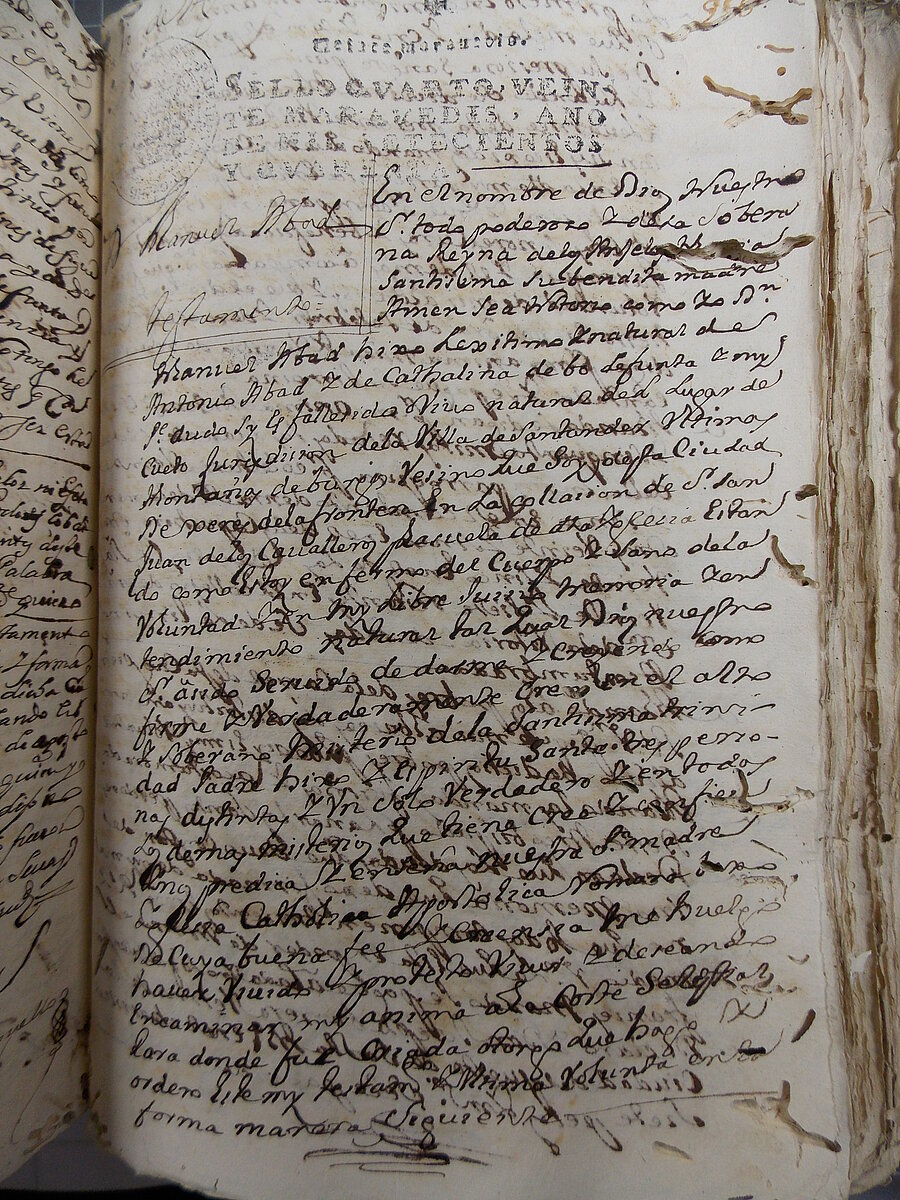 SELLO QVARTO, VEIN-
TE MARAVEDIS, AÑO
DE MIL SETECIENTOS
Y QVARENTA.
Manuel Abad
testamento
En el nombre de Dios Nuestro
Sr. todo poderoso Y dela Sobera
na Reyna delos Anseles Maria
Santisima Su bendita madre
Amen Sea Notorio como Yo Dn
Manuel Abad hixo Lexitimo Y natural de
Antonio Abad Y de Cathalina de bo defunta Y my
Pe. dudo Sy Es fallesido o Vivo natural del Lugar de
Cueto Jurisdision dela Villa de Santander
Montañas de burgos Vesino que Soy desta Ciudad
De xeres dela frontera En La collasion de Sr. San
Juan delos Cavalleros Plasuela de dha Yglesia Estan
do como Estoy enfermo del Cuerpo Y Sano dela
Voluntad Y En my Libre Juisio memoria Y en
tendimiento natural tal qual Dios nuestro
Sr. a sido Servido de darme Y Creyendo como
firme Y Verdaderamente Creo en el alto
Y Soberano Misterio dela Santisima trini-
dad Padre hixo Y Espiritu Santo tres perso-
nas distintas Y Un Solo Verdadero Y en todos
Los demas misterios que tiene Cree Y confiesa
predica Y Enseña nuestra Sta. madre
Yglesia Catholica Apostolica Romana baxo
De Cuya buena fee Y Creensia me huelgo
haver Vivido Y protesto Vivir Y deseando
Encaminar my anima a La Corte Selestial
Para donde fue Criada otorgo que hago
ordeno Este my testamto. Y Ultima Voluntad en la
forma manera Siguiente